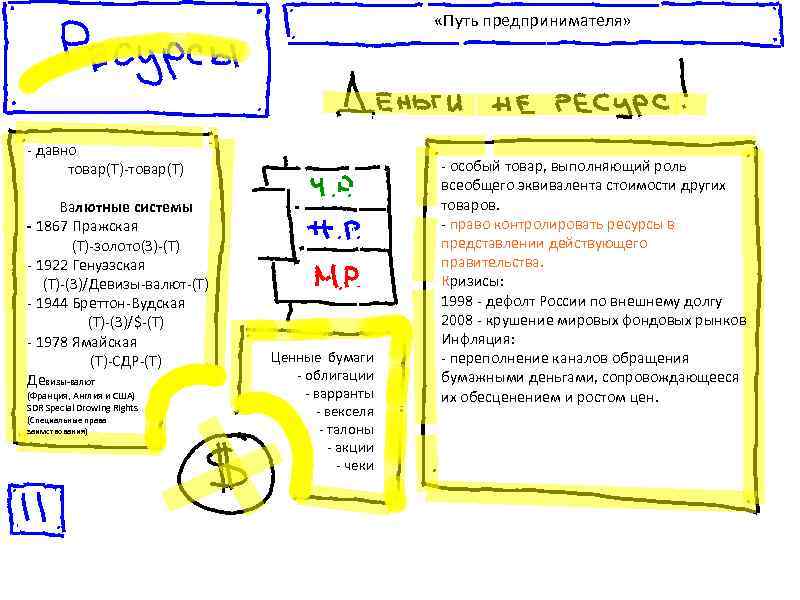 Ресурсы
«Путь предпринимателя»
Деньги не ресурс!
- давно
товар(Т)-товар(Т)
Валютные системы
- 1867 Пражская
(Т)-золото(З)-(Т)
- 1922 Генуэзская
(Т)-(З)/Девизы-валют-(Т)
- 1944 Бреттон-Вудская
(Т)-(З)/$-(Т)
- 1978 Ямайская
(Т)-СДР-(Т)
Девизы-валют
(Франция, Англия и США)
SDR Special Drowing Rights
(Специальные права
заимствования)
Ч.Р.
Н.Р.
М.Р.
Ценные бумаги
- облигации
- варранты
- векселя
- талоны
- акции
- чеки
$
- особый товар, выполняющий роль
всеобщего эквивалента стоимости других
товаров.
- право контролировать ресурсы в
представлении действующего
правительства.
Кризисы:
1998 - дефолт России по внешнему долгу
2008 - крушение мировых фондовых рынков
Инфляция:
- переполнение каналов обращения
бумажными деньгами, сопровождающееся
их обесценением и ростом цен.
11